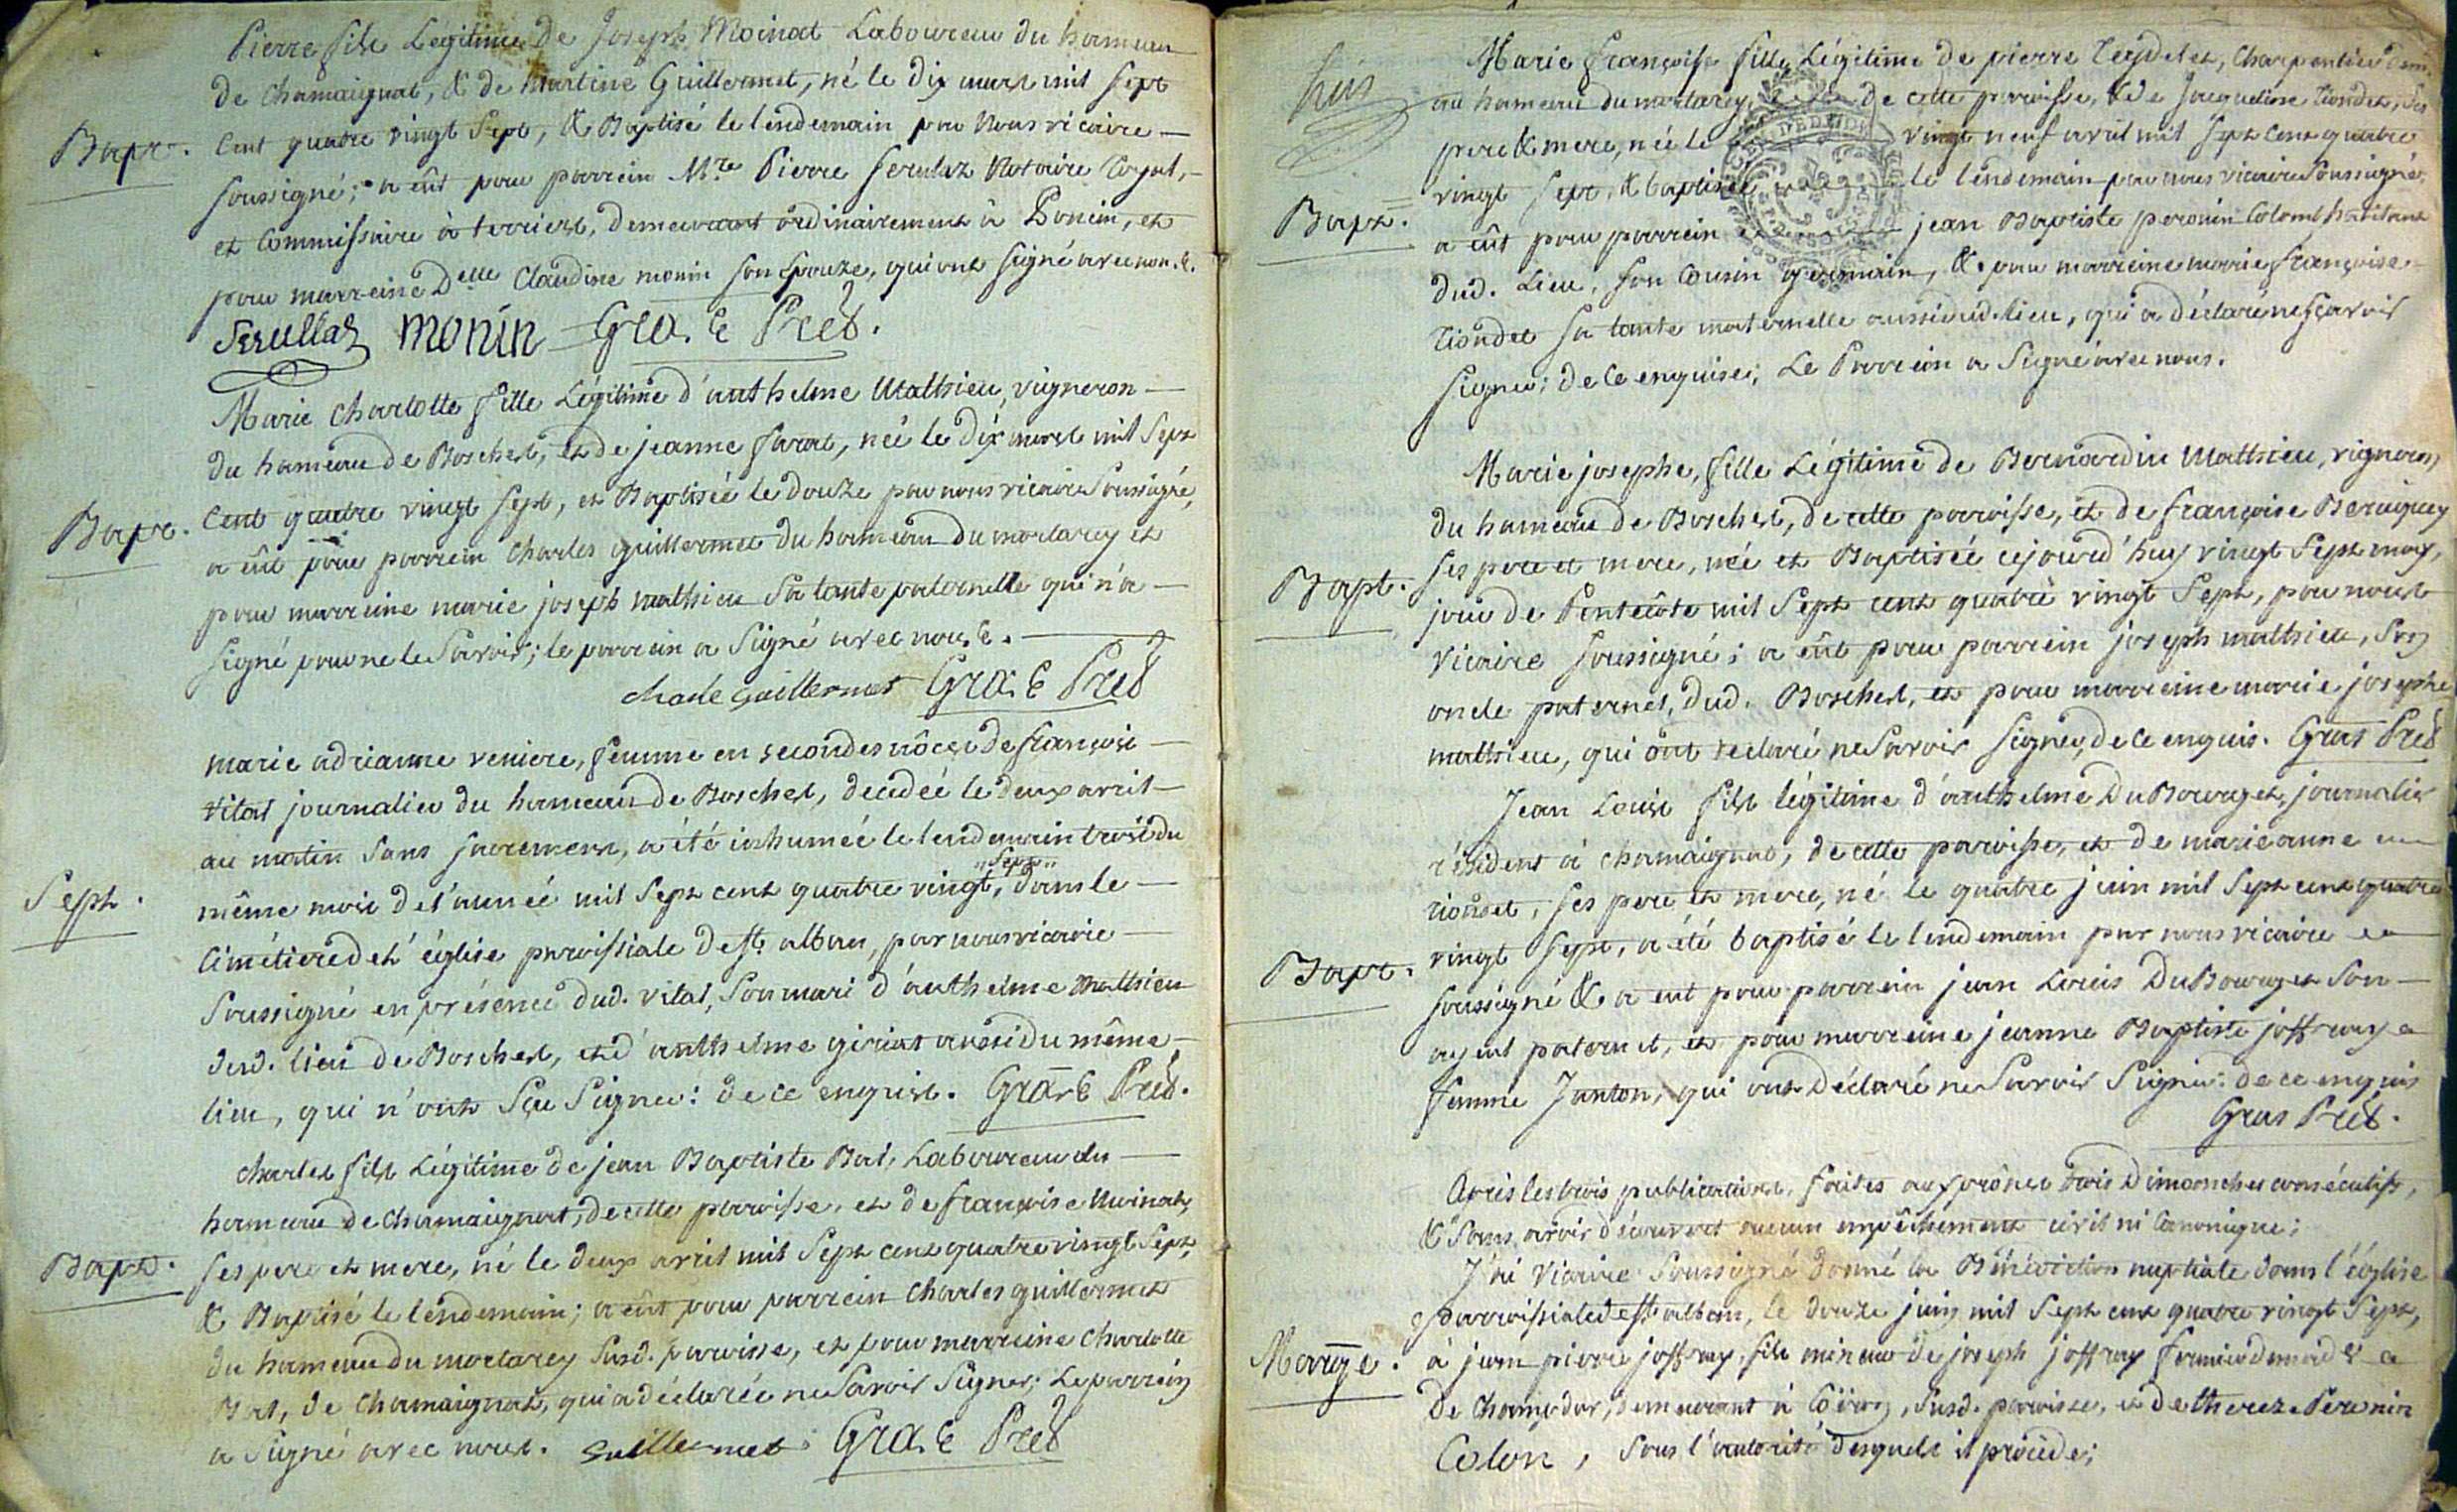 Pierre fils Légitime De Joseph Moinat Laboureur du hameau
de Chamaignat, & de Martine Guillermet, né le dix mars mil sept
Bapt. Cent quatre vingt Sept, & Baptisé le lendemain par Nous vicaire
soussigné; a eût pour parrein Mre Pierre Serulaz Notaire Royal,
et Commissaire à terriers, demeurant ordinairement à Poncin, et
pour marreine Delle Claudine monin son Epouze, qui ont signé avec nous.
Serullaz monin Gras Pret.
Marie Charlotte fille Légitime d'anthelme Mathieu, vigneron
du hameau de Boscher, et de jeanne farat, neé le dix mars mil Sept
Bapt. Cent quatre vingt Sept, et Baptiséé le douze par nous vicaire Soussigné,
a eût pour parrein Charles guillermet du hameau du mortarey et
pour marreine marie joseph mathieu Sa tante paternelle qui n'a
signé pour ne le Savoir; le parrein a Signé avec nous.
charle guillermet Gras Pret
marie adrianne veniere, femme en secondes nôces de françois
vital journalier du hameau de Boscher, decedéé le deux avril
au matin Sans sacremens, a été inhuméé le lendemain trois du
"Sept"
Sept. même mois de l'année mil Sept cent quatre vingt, dans le
Cimétiere de l'église paroissiale de st. alban, par nous vicaire
Soussigné en présence dud. vital, Son mari d'anthelme mathieu
dud. lieu de Boscher, et d'anthelme giriat aussi du même
lieu, qui n'ont Sçu Signer: de ce enquis. Gras Pret.
Charles fils Légitime de jean Baptiste Bal, Laboureur du
hameau de Chamaignat, de cette paroisse, et de françoise Moinat,
Bapt. ses pere et mere, né le deux avril mil Sept cent quatre vingt Sept,
& Baptisé le lendemain; a eût pour parrein Charles guillermet
du hameau du mortarey susd. paroisse, et pour marreine Charlotte
Bal, de Chamaignat, qui a déclaréé ne Savoir Signer; Le parrein
a Signé avec nous. Guillermet Gras Pret
Marie françoise fille Légitime de pierre Teydet, Charpentier dem.
au hameau du mortarey, de cette paroisse, & de Jacqueline Riondet, Ses
pere & mere, néé le vingt neuf avril mil Sept cent quatre
Bapt. vingt Sept, & baptiséé le lendemain par nous vicaire Soussigné,
a eût pour parrein jean Baptiste peronin Colomb habitant
dud. Lieu, Son Cousin germain, & pour marreine marie françoise
Riondet Sa tante maternelle aussi dud. lieu, qui a déclaré ne sçavoir
signer; de ce enquise; Le Parrein a Signé avec nous.
Marie josephe, fille Légitime de Bernardin Mathieu, vigneron
du hameau de Boscher, de cette paroisse, et de françoise
Bapt. ses pere et mere, néé et Baptiséé cejourd'huy vingt Sept may,
jour de Pentecôte mil Sept cent quatre vingt Sept, par nous
vicaire soussigné; a eût pour parrein joseph mathieu, Son
oncle paternel, dud. Boscher, et pour marreine marie josephe
mathieu, qui ont declaré ne Savoir Signer, de ce enquis. Gras Pret
Jean Louis fils légitime d'anthelme Du Bourget, journalier
résident à Chamaignat, de cette paroisse, et de marie anne
riondet, ses pere et mere, né le quatre juin mil Sept cent quatre
Bapt. vingt Sept, a été baptisé le lendemain par nous vicaire
soussigné & a eut pour parrein jean Louis Du Bourget Son
ayeul paternel, et pour marreine jeanne Baptiste joffray
femme Janton, qui ont déclaré ne Savoir Signer: de ce enquis
Gras Pret.
Après les trois publications, faites au prône trois Dimanches consécutifs,
& Sans avoir découvert aucun empêchement civil ni Canonique;
J'ai Vicaire Soussigné donné la Bénédiction nuptiale dans l'église
parroissiale de st. alban, le douze juin mil Sept cent quatre vingt Sept,
Mariage. à jean pierre joffray, fils mineur de joseph joffray
de Champdor, demeurant à susd. paroisse, et de thereze Peronin
Colon, Sous l'autorité desquels il procède;